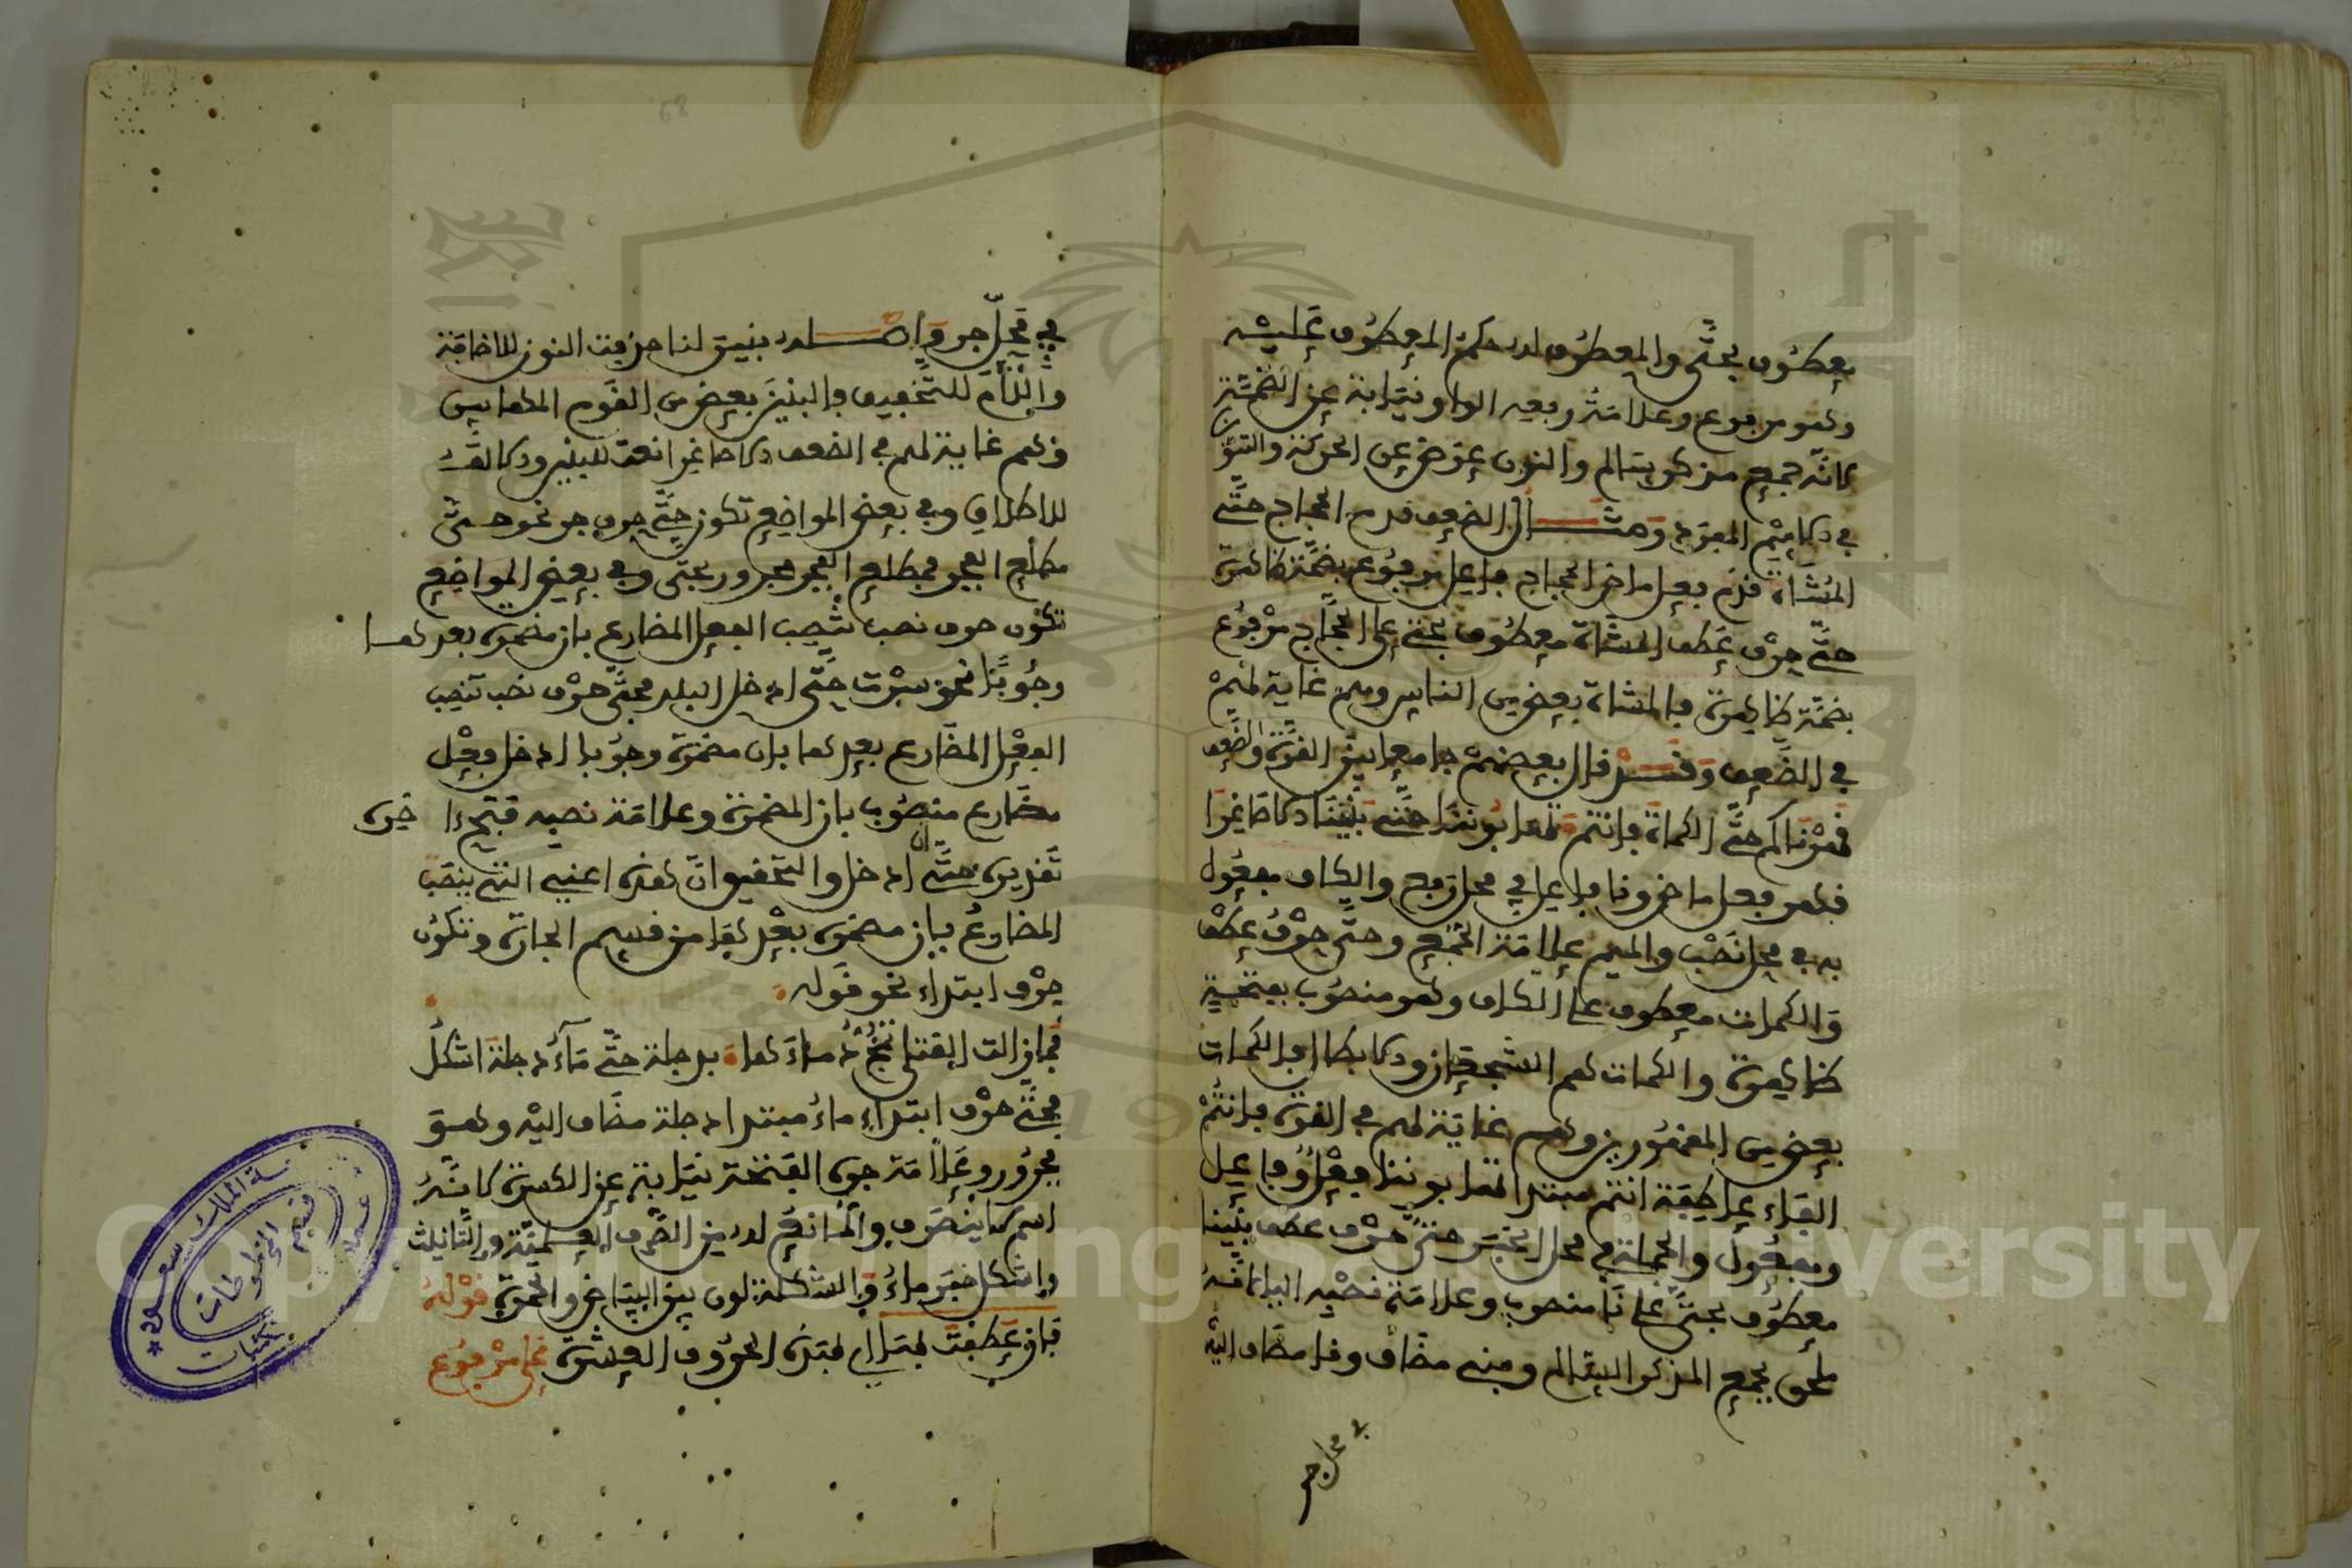 معطوف بحتى والمعطوف له حكم المعطوف عليه
وهو مرفوع وعلامة رفعه الواو نيابة عن الضمة
لانه جمع مذكر سالم والنون عوض عن الحركة والتنوين
في الاسم المفرد ومثال الضعف قدم الحجاج حتى
المشاة قدم فعل ماض الحجاج فاعل مرفوع بضمة ظاهرة
حتى حرف عطف المشاة معطوف بحتى على الحجاج مرفوع
بضمة ظاهرة فالمشاة بعض من الناس وهم غاية لهم
في الضعف وقد قال بعضهم جامعا بين القوة والضعف
قهرناكم حتى الكماة فانتم تهابوننا حتى بنينا الاصاغرا
فقهر فعل ماض ونا فاعل في محل رفع والكاف مفعول
به في محل نصب والميم علامة الجمع وحتى حرف عطف
والكمات معطوف على الكاف وهو منصوب بفتحة
ظاهرة والكمات هم الشجعان والابطال فالكمات
بعض من المقهورين وهم غاية لهم في القوة فانتم
الفاء عاطفة انتم مبتدا تهابوننا فعل وفاعل
ومفعول والجملة في محل الخبر حتى حرف عطف بنينا
معطوف بحتى على نا منصوب وعلامة نصبه الياء لانه
ملحق بجمع المذكر السالم وبني مضاف ونا مضاف اليه
في محل جر
في محل جر واصله بنين لنا حذفت النون للاضافة
واللام للتخفيف فالبنين بعض من القوم
وهم غاية لهم في الضعف الاصاغرا نعت للبنين والالف
للاطلاق وفي بعض المواضع تكون حتى حرف جر نحو حتى
مطلع الفجر فمطلع الفجر مجرور بحتى وفي بعض المواضع
تكون حرف نصب تنصب الفعل المضارع بان مضمرة بعدها
وجوبا نحو سرت حتى ادخل البلد فحتى حرف نصب تنصب
الفعل المضارع بعدها بان مضمرة وجوبا ادخل فعل
مضارع منصوب بان المضمرة وعلامة نصبه فتح ءاخره
تقديره حتى ان ادخل والتحقيق ان هذه اعني التي ينصب
المضارع بان مضمرة بعدها من قسم الجارة وتكون
حرف ابتداء نحو قوله
فمازالت القتلى تمج دماءها بدجلة حتى ماء دجلة اشكل
فحتى حرف ابتداء ماء مبتدا دجلة مضاف اليه وهو
مجرور وعلامة جره الفتحة نيابة عن الكسرة لانه
اسم لا ينصرف والمانع له من الصرف العلمية والتانيث
واشكل خبر ماء والشكلة لون بين البياض والحمرة قوله
فان عطفت بها اي بهذه الحروف العشرة على مرفوع